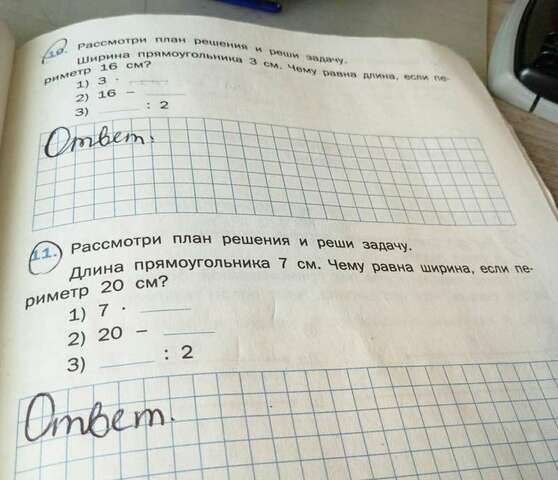 10. Рассмотри план решения и реши задачу.
Ширина прямоугольника 3 см. Чему равна длина, если пе-
риметр 16 см?
1) 3 · ____
2) 16 – ____
3) ____ : 2
Ответ.
11. Рассмотри план решения и реши задачу.
Длина прямоугольника 7 см. Чему равна ширина, если пе-
риметр 20 см?
1) 7 · ____
2) 20 – ____
3) ____ : 2
Ответ.